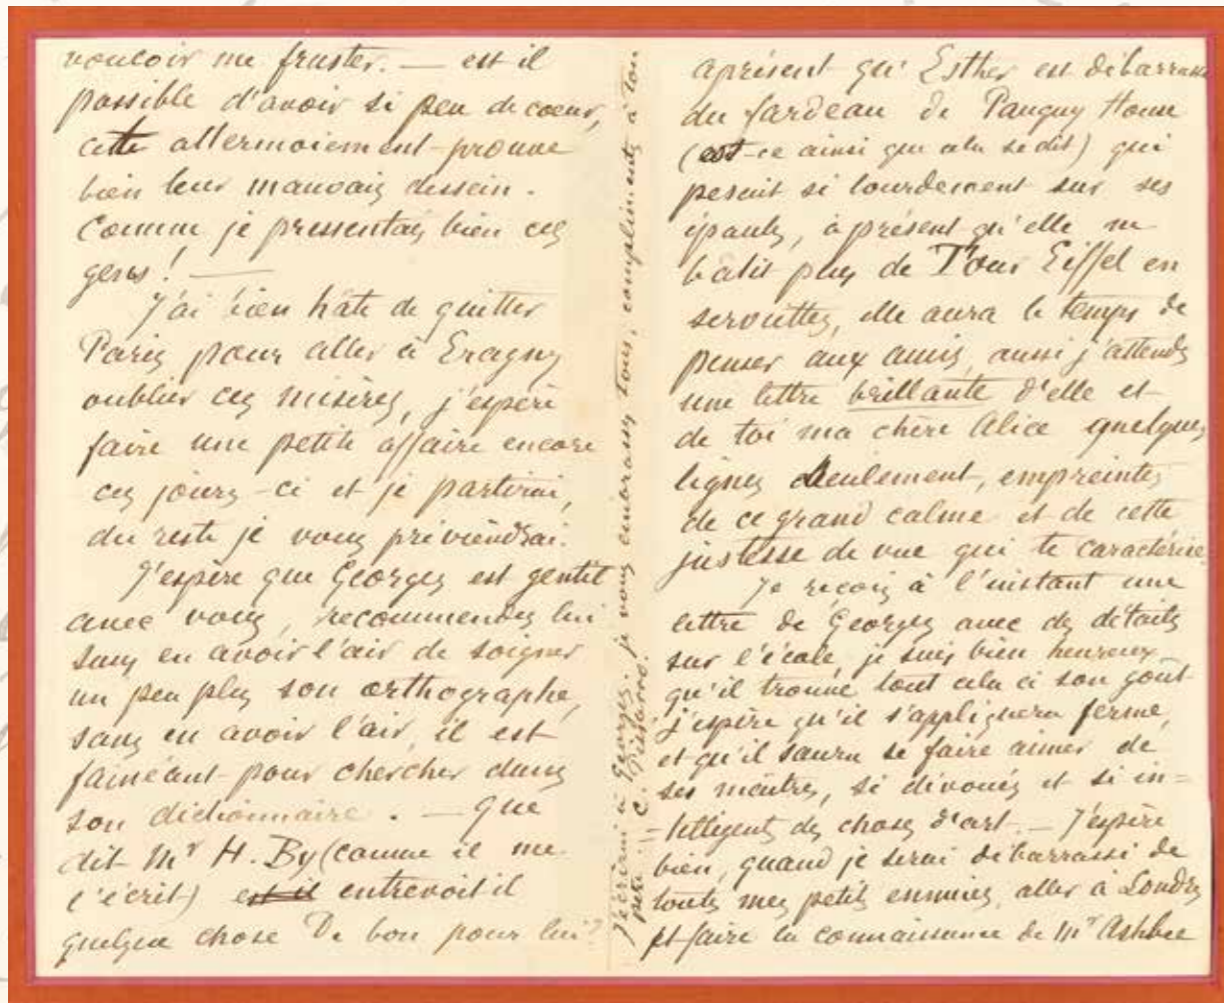 vouloir me fruster. — est il
possible d'avoir si peu de coeur,
cette attermoiement prouve
bien leur mauvais dessein.
Comme je pressentais bien ces
gens ! —
J'ai bien hâte de quitter
Paris pour aller à Eragny
oublier ces misères, j'espère
faire une petite affaire encore
ces jours-ci et je partirai,
du reste je vous préviendrai.
J'espère que Georges est gentil
avec vous, recommendez lui
sans en avoir l'air de soigner
un peu plus son orthographe,
sans en avoir l'air, il est
fainéant pour chercher dans
son dictionnaire. — Que
dit Mr H. By (comme il me
l'écrit) est il entrevoit il
quelque chose De bon pour lui?
J'écrirai à Georges. je vous embrasse tous, compliments à ton
père. C. Pissarro.
àprésent qu'Esther est débarrassé
du fardeau de Panguy House
(est-ce ainsi que cela se dit) qui
pesait si lourdement sur ses
épaules, à présent qu'elle ne
bâtit plus de Tour Eiffel en
serviettes, elle aura le temps de
penser aux amis, aussi j'attends
une lettre brillante d'elle et
de toi ma chère Alice quelques
lignes seulement, empreintes
de ce grand calme et de cette
justesse de vue qui te caractérise
Je reçois à l'instant une
lettre de Georges avec des détails
sur l'école, je suis bien heureux
qu'il trouve tout cela à son goût
j'espère qu'il s'appliquera ferme,
et qu'il saura se faire aimer de
ses maîtres, si dévoués et si in=
=telligents des choses d'art. — J'espère
bien, quand je serai débarrassé de
toutes mes petits ennuies, aller à Londres
et faire la connaissance de Mr Ashbee